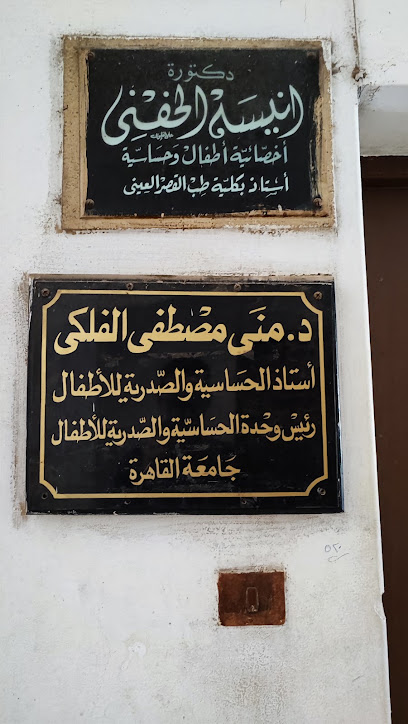 دكتورة
انيسة الحفني
أخصائية أطفال وحساسية
أستاذ بكلية طب القصر العيني
د. منى مصطفى الفلكى
أستاذ الحساسية والصدرية للأطفال
رئيس وحدة الحساسية والصدرية للأطفال
جامعة القاهرة